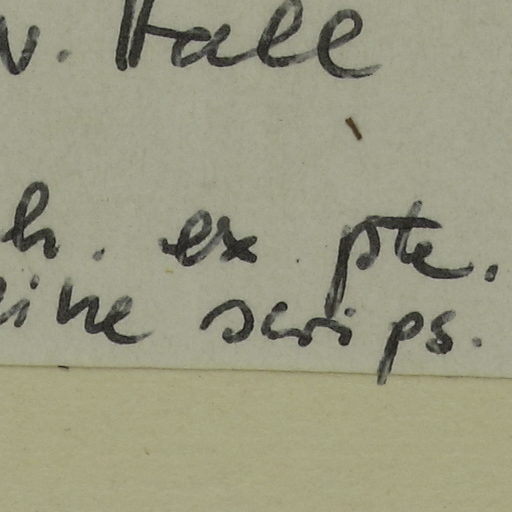 v. Hall
h. ex. pte.
eine scrips.